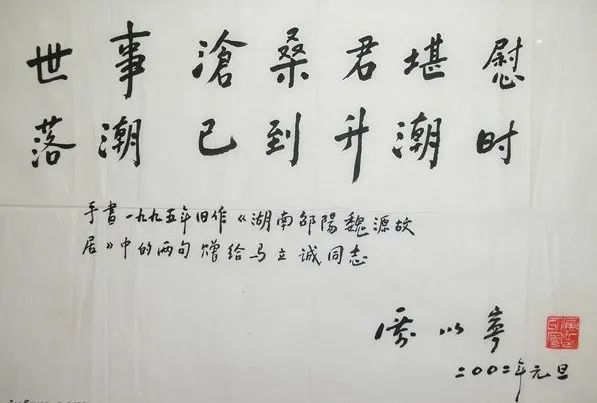 世事滄桑君堪慰
落潮已到升潮时
手書一九九五年旧作《湖南邵陽魏源故
居》中的两句 赠给马立诚同志
厲以寧
二00二年元旦